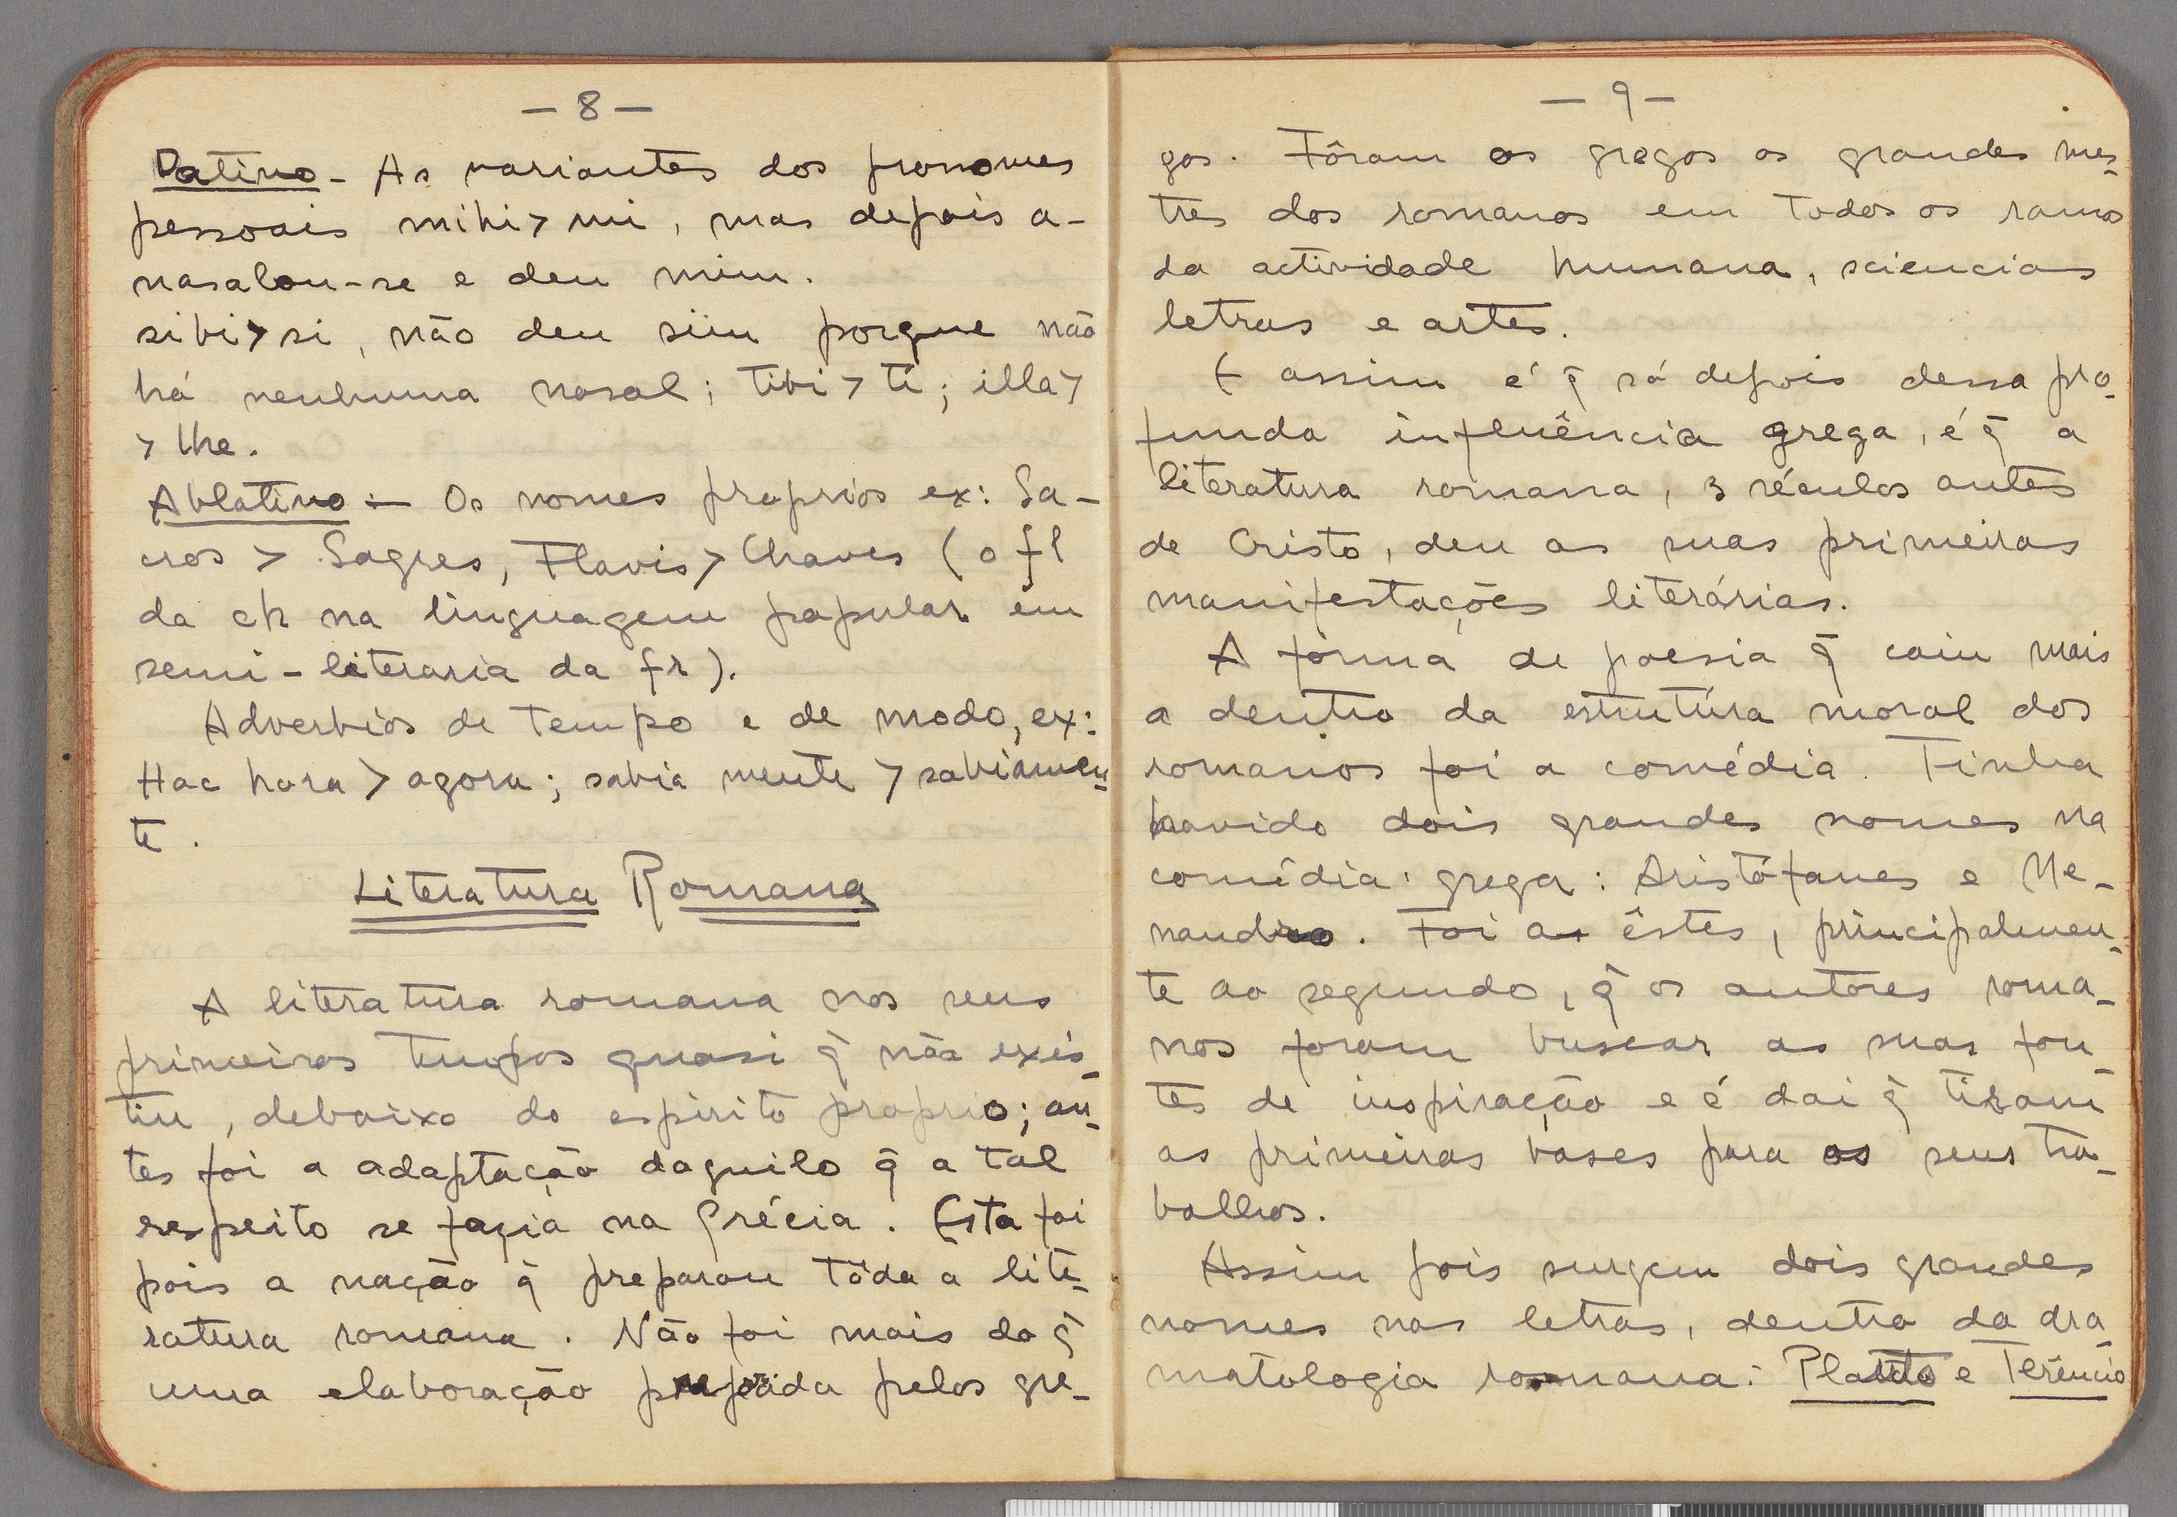 — 8 —
Dativo - As variantes dos pronomes
pessoais mihi > mi, mas depois a-
nasalou-se e deu mim.
sibi > si, não deu sim porque não
há nenhuma nasal; tibi > ti; illa >
> lhe.
Ablativo :- Os nomes proprios ex: Sa-
cros > Sagres, Flavis > Chaves (o fl
da ch na linguagem popular em
semi-literaria da fr).
Adverbios de tempo e de modo, ex:
Hac hora > agora; sabia mente > sabiamen-
te.
Literatura Romana
A literatura romana nos seus
primeiros tempos quasi q̃ não exis-
tiu, debaixo do espirito proprio; an-
tes foi a adaptação daquilo q̃ a tal
respeito se fazia na Grécia. Esta foi
pois a nação q̃ preparou tôda a lite-
ratura romana. Não foi mais do q̃
uma elaboração pelos gre-
— 9 —
gos. Fôram os gregos os grandes mes-
tres dos romanos em todos os ramos
da actividade humana, sciencias
letras e artes.
E assim é q̃ só depois dessa pro-
funda influência grega, é q̃ a
literatura romana, 3 séculos antes
de Cristo, deu as suas primeiras
manifestações literárias.
A fórma de poesia q̃ caiu mais
a dentro da estrutúra moral dos
romanos foi a comédia. Tinha
havido dois grandes nomes na
comédia grega: Aristófanes e Me-
nandro. Foi a êstes, principalmen-
te ao segundo, q̃ os autores roma-
nos foram buscar as suas fon-
tes de inspiração e é dai q̃ tiram
as primeiras bases para os seus tra-
balhos.
Assim pois surgem dois grandes
nomes nas letras, dentro da dra-
matologia romana: Plauto e Terêncio